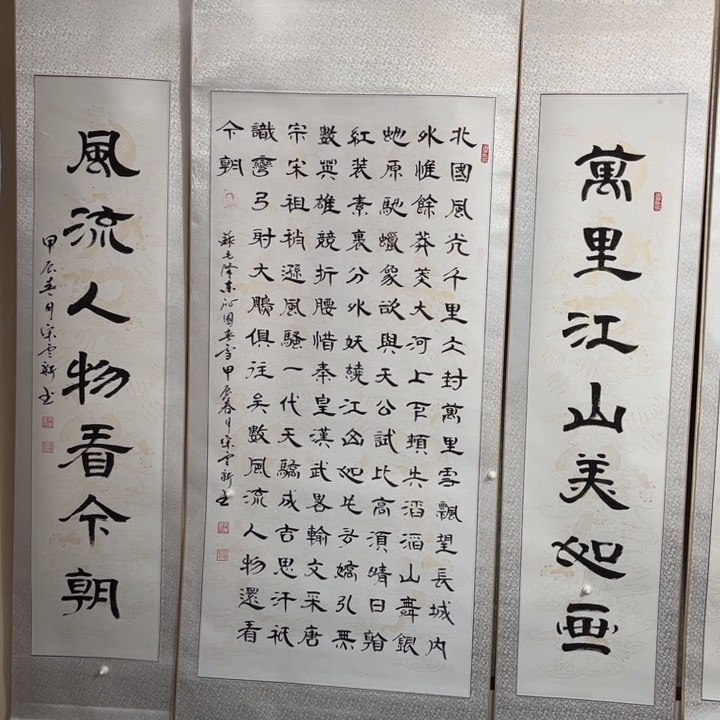 萬里江山美如画
北國風光千里冰封萬里雪飄望長城内
外惟餘莽莽大河上下頓失滔滔山舞銀
虵原馳蠟象欲與天公試比高須晴日看
紅装素裹分外妖繞江山如此多嬌引無
數英雄競折腰惜秦皇漢武畧輸文采唐
宗宋祖稍遜風騷一代天驕成吉思汗祇
識彎弓射大鵰俱往矣數風流人物還看
今朝
録毛泽东沁园春雪甲辰春月宋雲新书
風流人物看今朝
甲辰春月宋雲新书